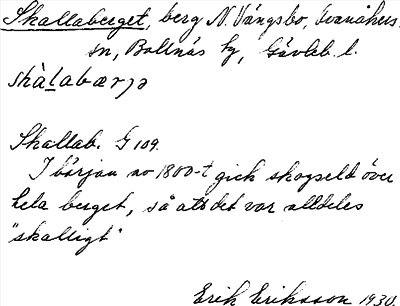 Skallaberget, berg N. Vångsbo, Svanåhers.
sn, Bollnäs kg, Gävleb. l.
skàlabærjə
Skallab. G 109.
I början av 1800-t gick skogseld över
hela berget, så att det var alldeles
"skalligt"
Erik Eriksson 1930.